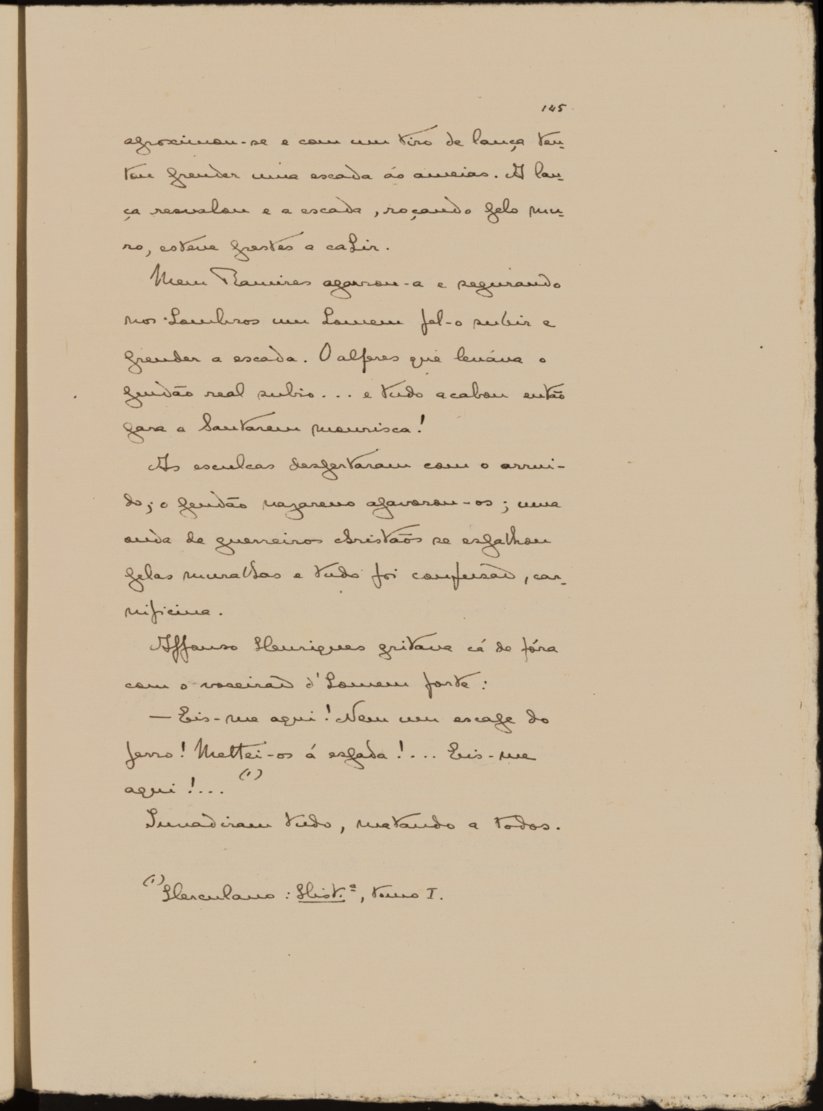 145
aproximou-se e com um tiro de lança ten-
tou prender uma escada ás ameias. A lan-
ça resvalou e a escada, roçando pelo mu-
ro, esteve prestes a cahir.
Mem Ramires agarrou-a e segurando
nos hombros um homem fel-o subir e
prender a escada. O alferes que leváva o
guidão real subio... e tudo acabou então
para a Santarem mourisca!
As esculcas despertaram com o arrui-
do; o guidão nazareno apavorou-os; uma
onda de guerreiros christãos se espalhou
pelas muralhas e tudo foi confusão, car-
nificina.
Affonso Henriques gritava cá de fóra
com o vozeirão d'homem forte:
— Eis-me aqui! Nem um escape do
ferro! Mettei-os á espada!... Eis-me
aqui!... (1)
Invadiram tudo, matando a todos.
(1) Herculano: Hist.ª, tomo I.